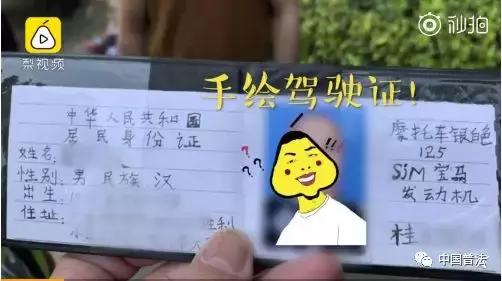 梨视频
秒拍
手绘驾驶证!
中华人民共和国
居民身份证
姓名
性别:男 民族 汉
出生
住址:
摩托车银色
125
SJM 宝马
发动机
桂
? ??
中国普法